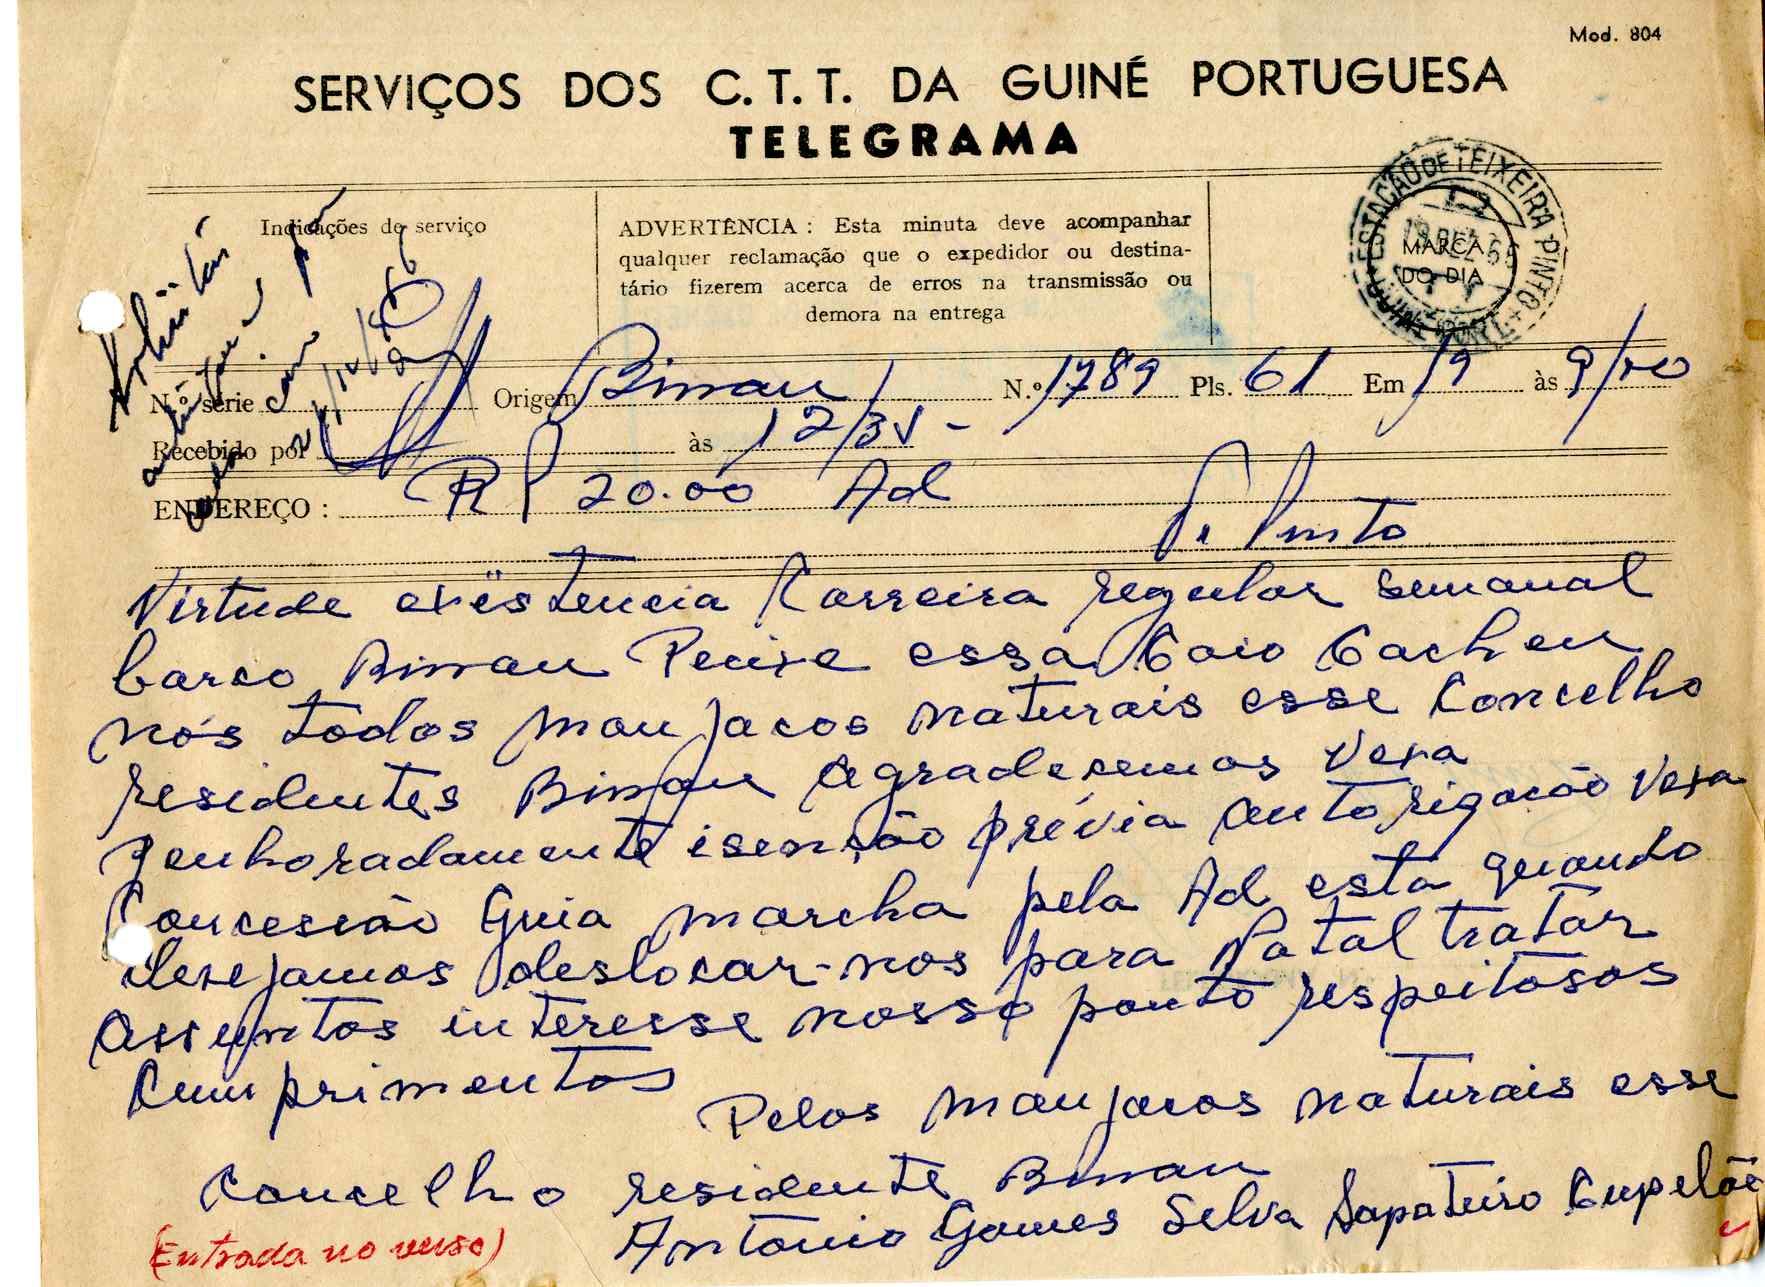 Mod. 804
SERVIÇOS DOS C. T. T. DA GUINÉ PORTUGUESA
TELEGRAMA
Indicações de serviço
ADVERTÊNCIA : Esta minuta deve acompanhar
qualquer reclamação que o expedidor ou destina-
tário fizerem acerca de erros na transmissão ou
demora na entrega
ESTAÇÃO DE TEIXEIRA PINTO
MARCA
DO DIA
N.º série Origem Bissau N.º 1789 Pls. 61 Em 19 às 9/50
Recebido por às 12/35 -
ENDEREÇO : RP 20.00 Ad
T. Pinto
Virtude existencia Carreira regular semanal
barco Bissau Pecixe essa Caio Cacheu
nós todos manjacos naturais esse Concelho
residentes Bissau agradecemos Vexa
penhoradamente isenção prévia autorização Vexa
Concessão Guia marcha pela Ad esta quando
desejamos deslocar-nos para Natal tratar
assuntos interesse nosso ponto respeitosos
Cumprimentos
Pelos manjacos naturais esse
Concelho residente Bissau
António Gomes Selva Sapateiro Cupelõe
(Entrada no verso)